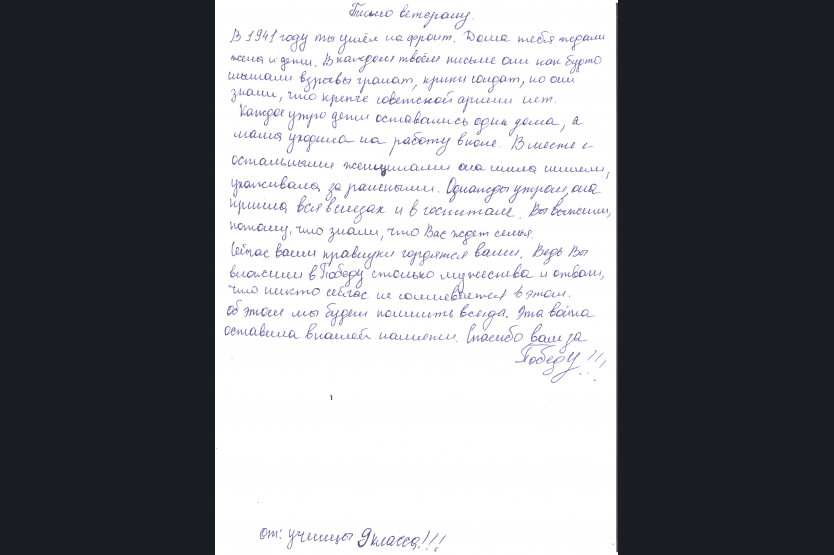 Письмо ветерану.
В 1941 году ты ушёл на фронт. Дома тебя ждали
жена и дети. В каждом твоём письме они как будто
слышали взрывы гранат, крики солдат, но они
знали, что крепче советской армии нет.
Каждое утро дети оставались одни дома, а
мама уходила на работу в поле. Вместе с
остальными женщинами она шила шинели,
ухаживала за ранеными. Однажды утром, она
пришла вся в слезах и в госпитале. Вы выжили,
потому, что знали, что Вас ждет семья.
Сейчас ваши правнуки гордятся вами. Ведь Вы
вложили в Победу столько мужества и отваги,
что никто сейчас не сомневается в этом.
об этом мы будем помнить всегда. Эта война
оставила в нашей памяти. Спасибо вам за
Победу!!!
от: ученицы 9 класса!!!